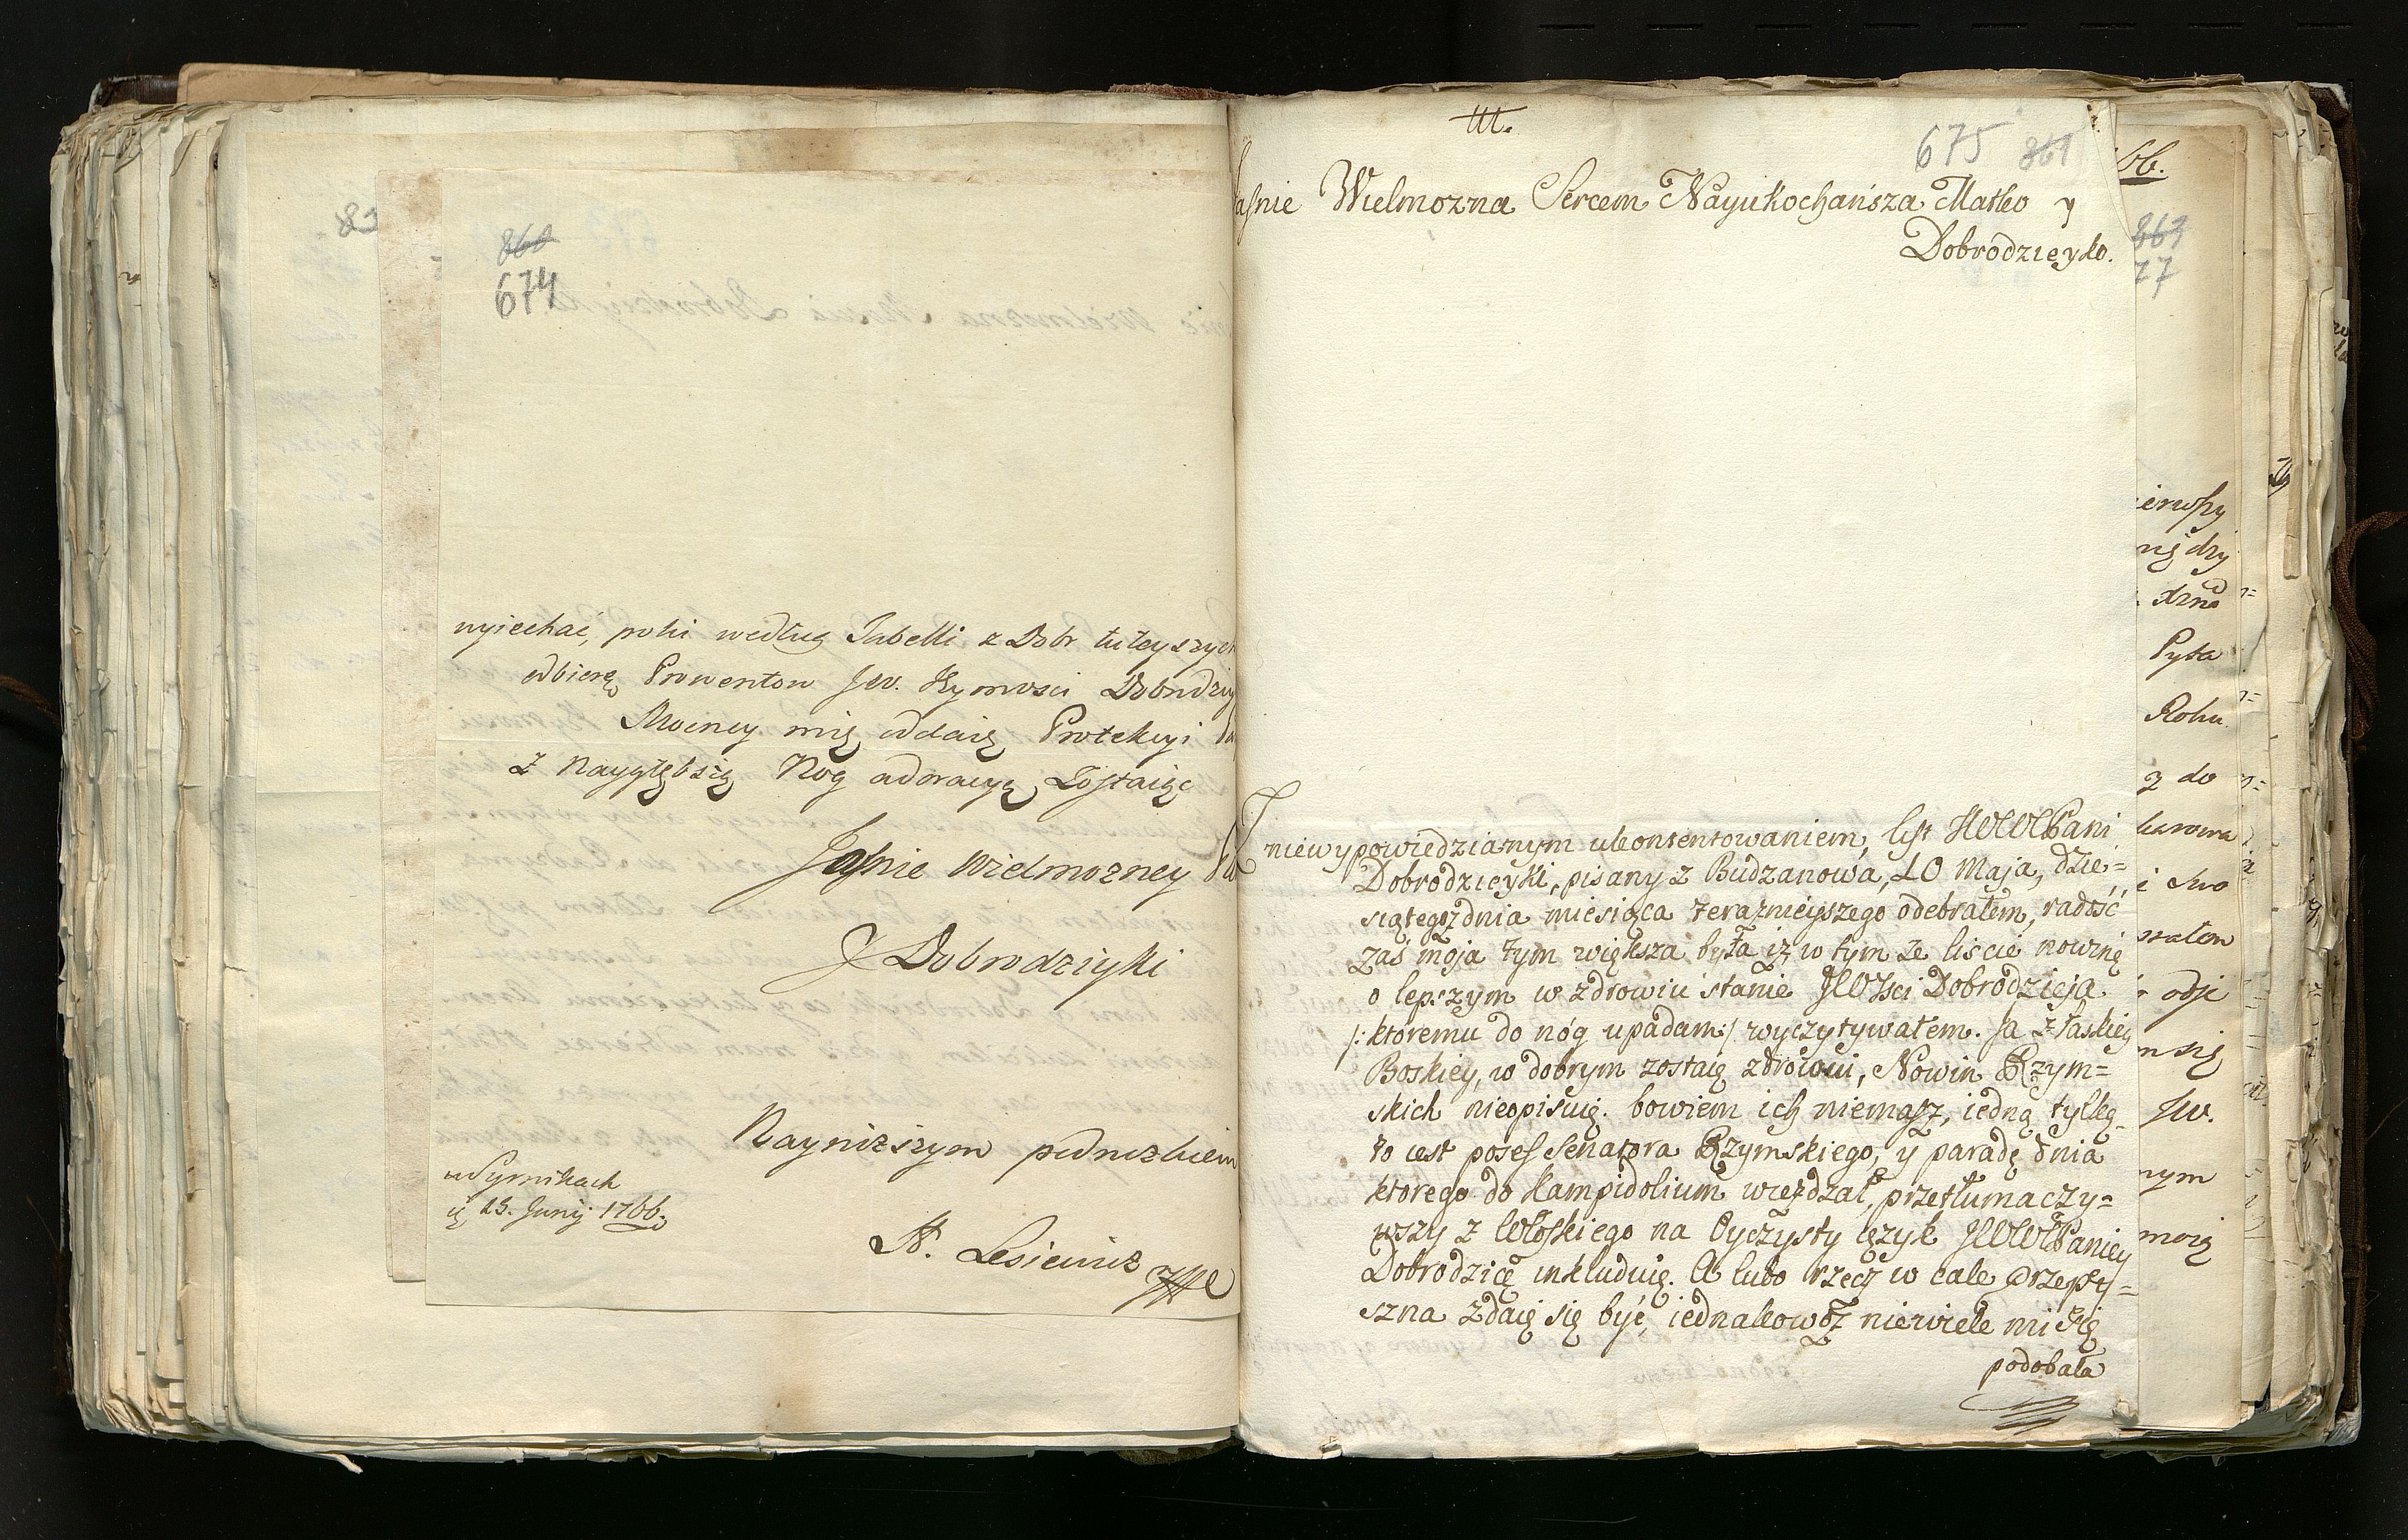 83
868
674
wyiechać, poki według Tabelli z Dobr tuteyszych
odbiorę Prowentow JW. Jeymości Dobrodzi
Mocney mię oddaię Protekcyi
Z naygłębszą Nog adoracyą Zostaiąc
Jaśnie Wielmozney
y Dobrodziyki
Nayniższym podnozkiem
w Syrnikach
23. Junij 1766.
St. Lesiewicz
675 861
Jaśnie Wielmozna Sercem Nayukochańsza Matko y
Dobrodzieyko.
Z niewypowiedzianym ukontentowaniem, list JWWPani
Dobrodzieyki, pisany z Budzanowa, 10 Maja, dzie=
siątego dnia miesiąca teraznieyszego odebrałem, radość
zaś moja tym większa była iż w tym ze liście nowinę
o lepszym w zdrowiu stanie JWJsci Dobrodzieja
/: ktoremu do nóg upadam :/ wyczytywałem. Ja z łaskiey
Boskiey, w dobrym zostaię zdrowiu, Nowin Rzym=
skich nieopisuię. bowiem ich niemasz, iedną tylko
to iest posess Senatora Rzymskiego, y paradę dnia
ktorego do Kampidolium wieżdzał, przetłumaczy=
wszy z Włoskiego na Oyczysty ięzyk JWWPaniey
Dobrodzice inkluduię. A lubo rzecz w cale przepy=
szna zdaię się być, iednakowoż niewiele mi się
podobała
bb.
869
77
ierwszy
Pyta
Roku
z do
i swo
odje
m się
JW.
nym
moię